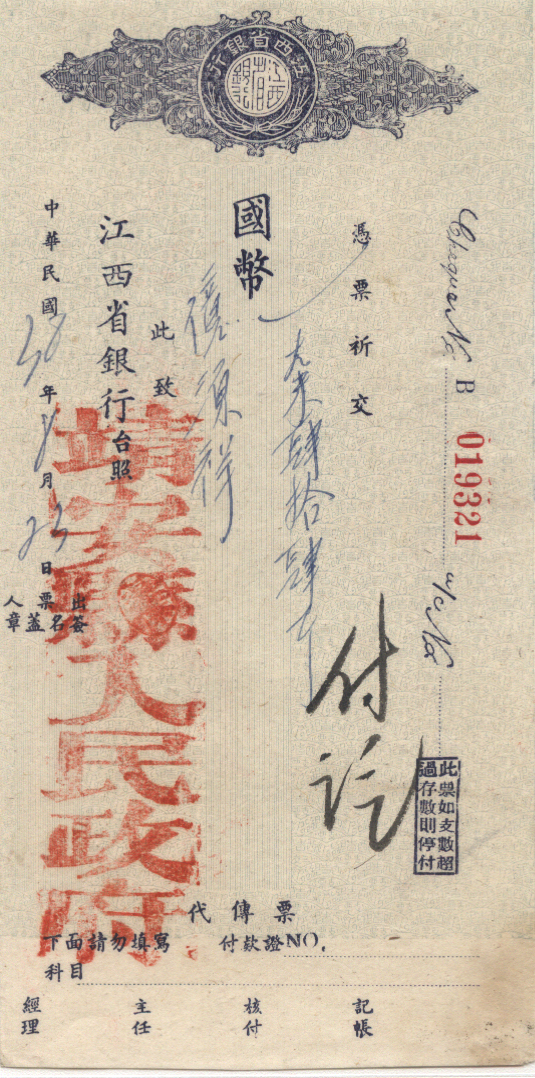 江西省銀行
江西省銀行
Cheque No. B 019321 a/c No.
此票如支數超
過存數則停付
憑票祈交
大米肆拾肆斤
付訖
國幣
此致
江西省銀行台照
中華民國38年8月23日
出票人
簽名蓋章
靖安縣人民政府
代傳票
付款證NO.
下面請勿填寫
科目
記帳
核付
主任
經理